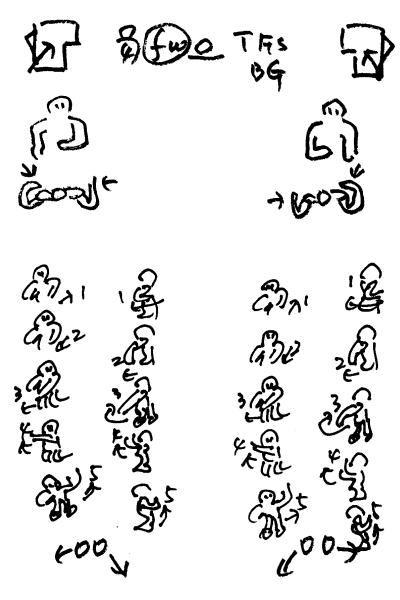 fw TFs
BG
1 1 1 1
2 2 2 2
3 3 3 3
4 4 4 4
5 5 5 5